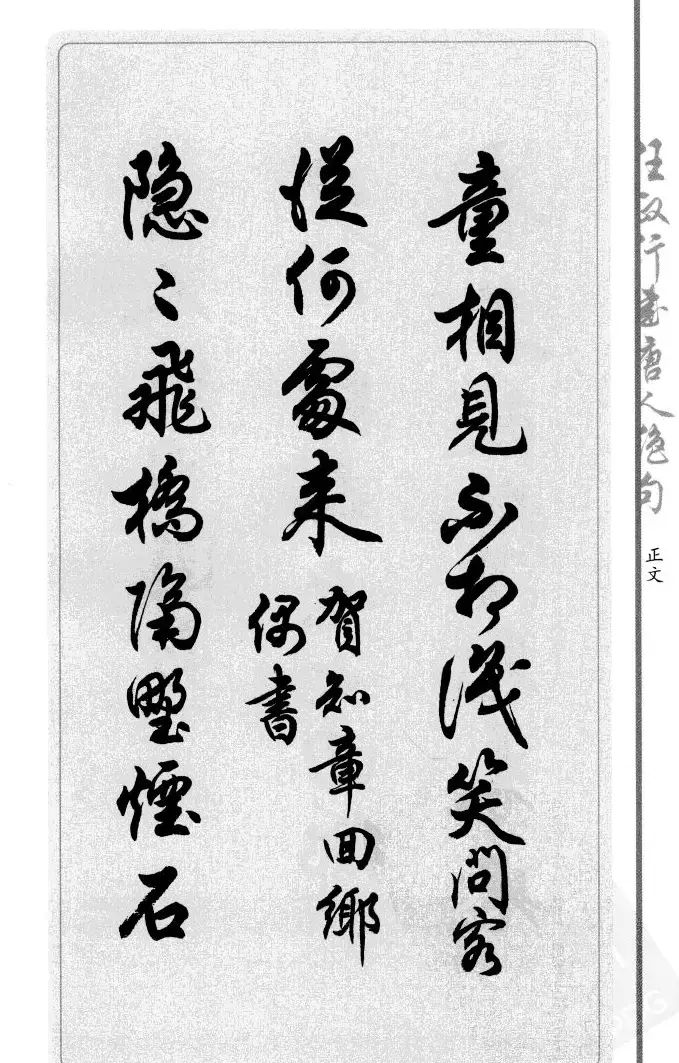 童相見不相識笑問客
從何處来
賀知章回鄉
偶書
隐〻飛橋隔野煙石
任政行書唐人絶句
正文